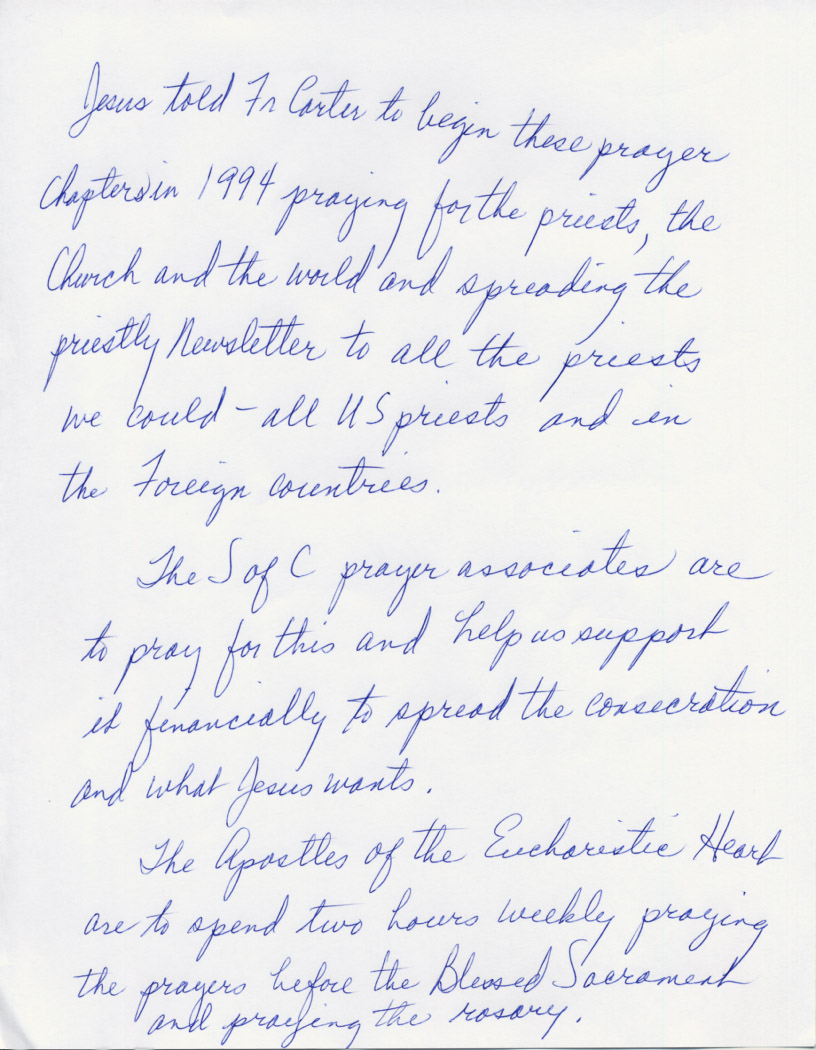 Jesus told Fr Carter to begin these prayer
Chapters in 1994 praying for the priests, the
Church and the world and spreading the
priestly Newsletter to all the priests
we could – all US priests and in
the Foreign countries.
The S of C prayer associates are
to pray for this and help us support
it financially to spread the consecration
and what Jesus wants.
The Apostles of the Eucharistic Heart
are to spend two hours weekly praying
the prayers before the Blessed Sacrament
and praying the rosary.